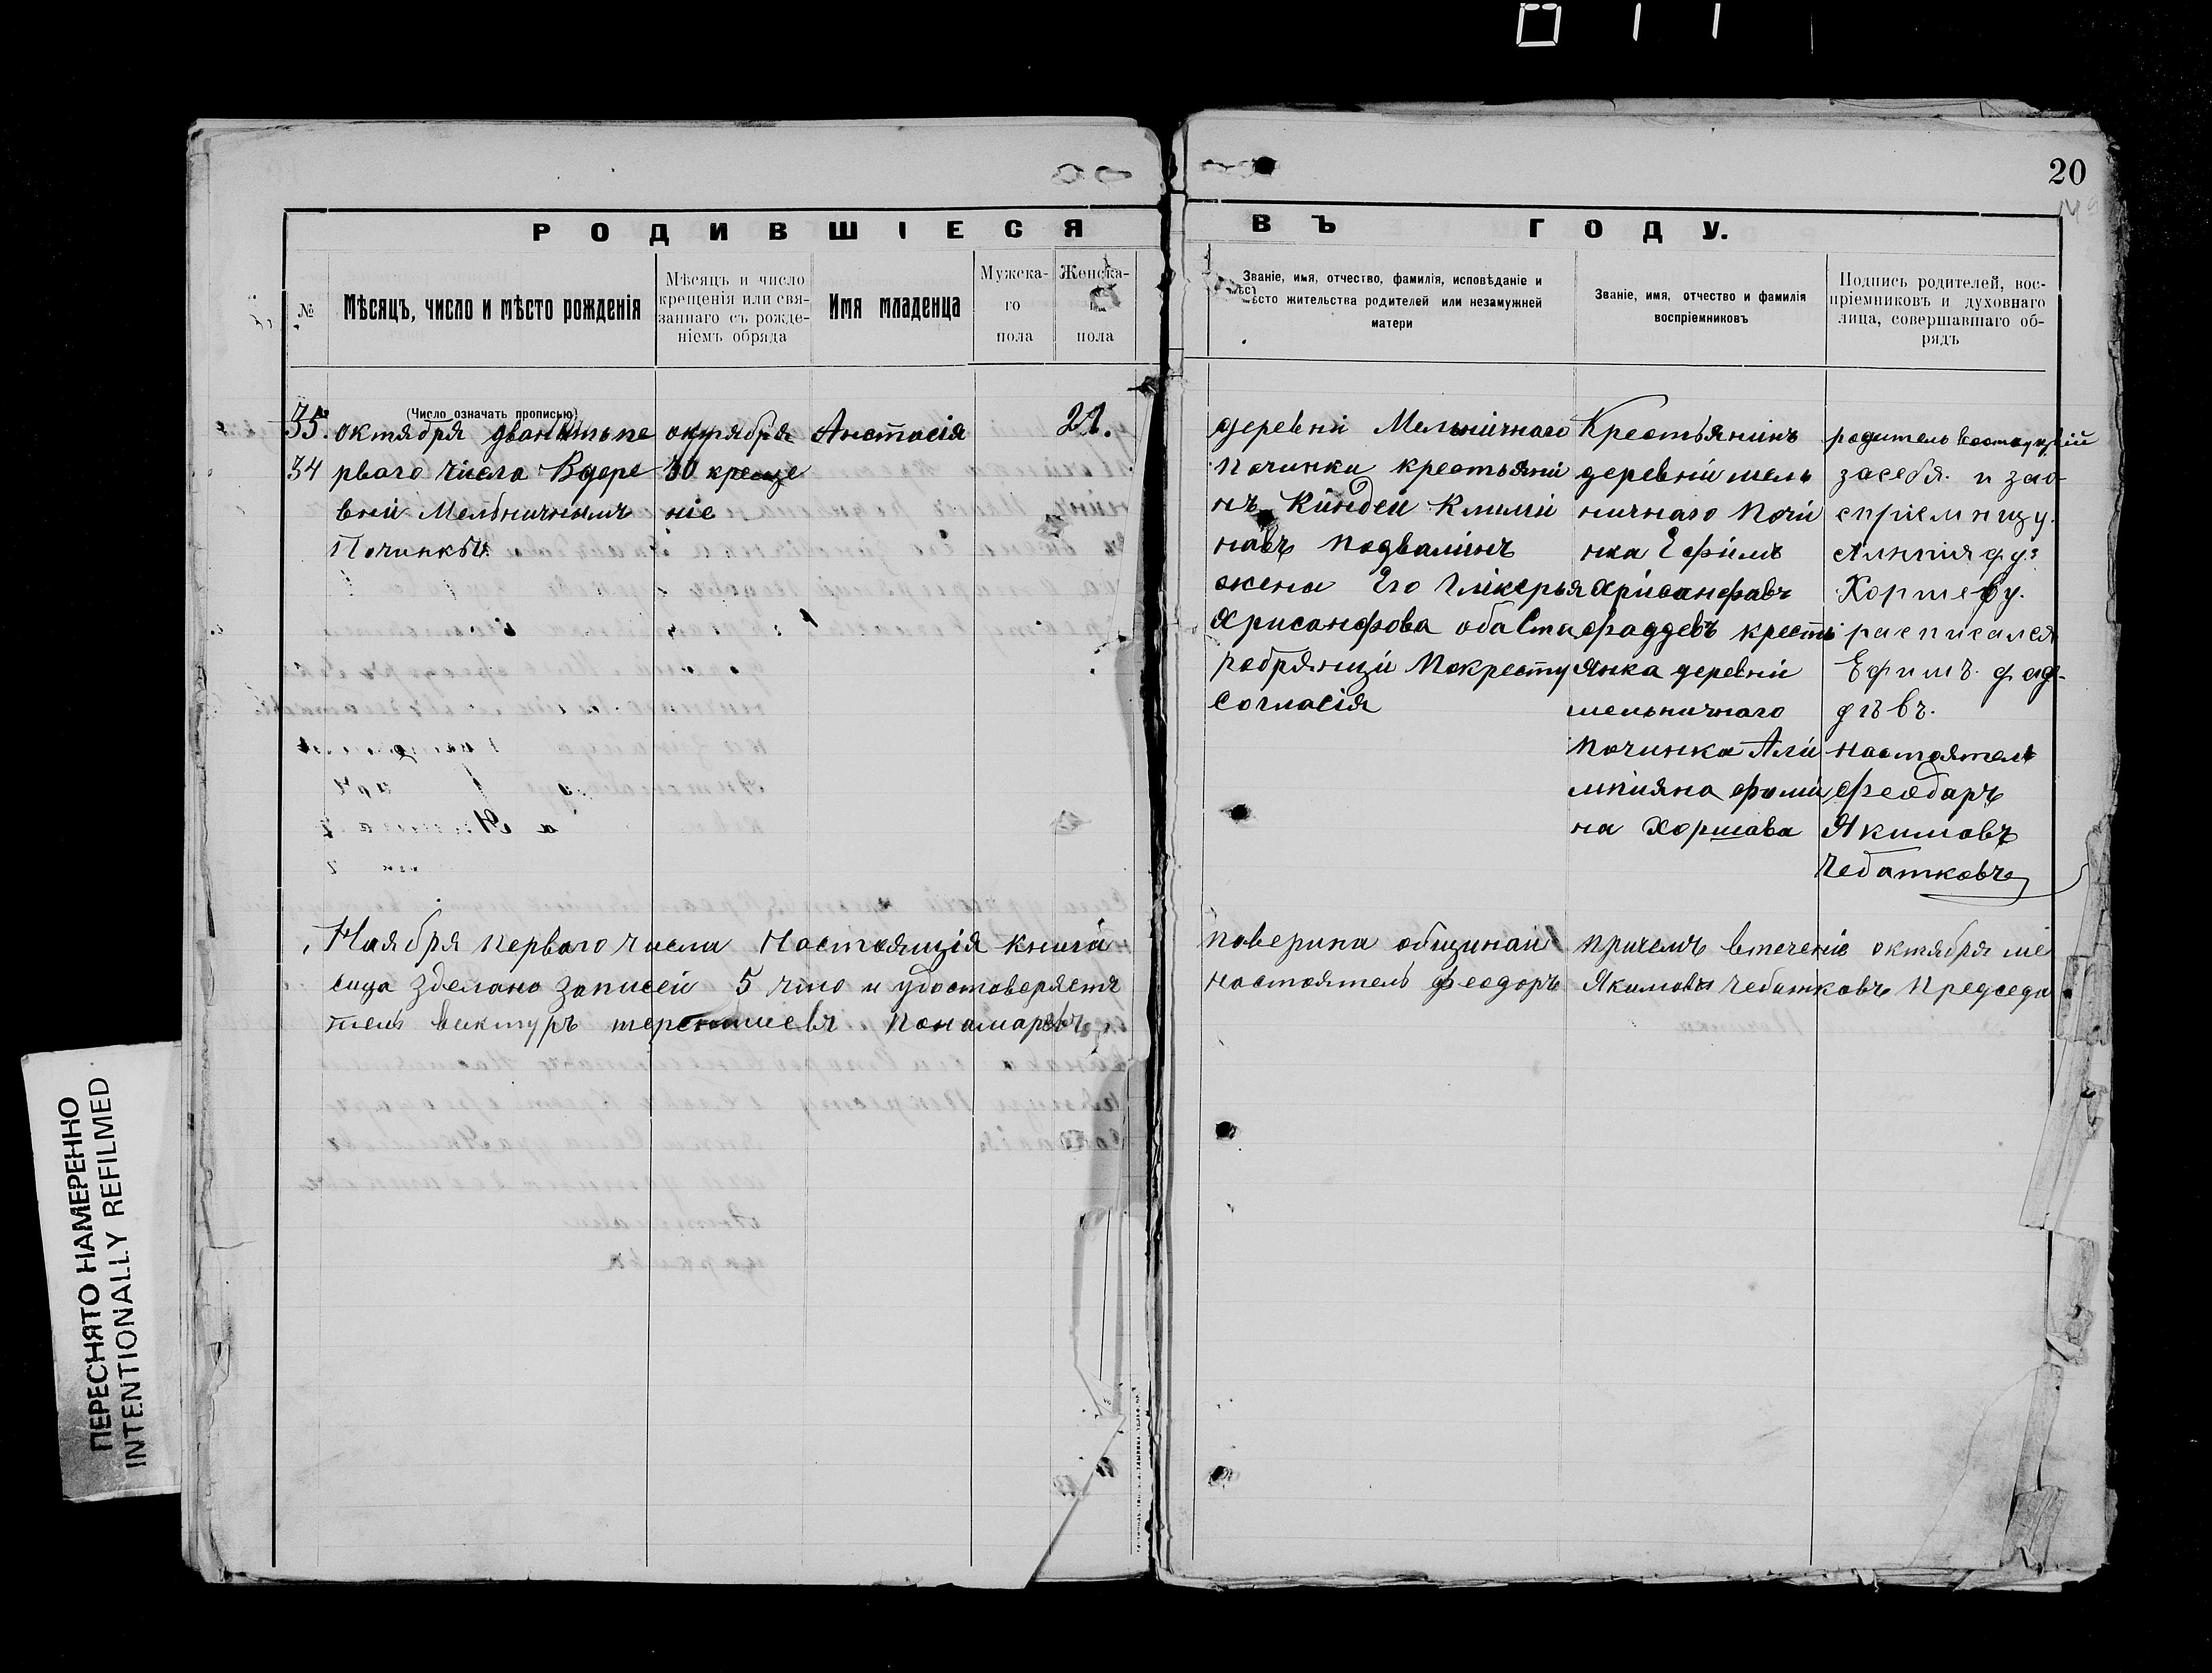 20
РОДИВШІЕСЯ
ВЪ ГОДУ.
№
Мѣсяцъ, число и мѣсто рожденія
Мѣсяцъ и число
крещенія или свя-
заннаго съ рожде-
ніемъ обряда
Имя младенца
Мужска-
го
пола
Женска-
пола
Званіе, имя, отчество, фамилія, исповѣданіе и
мѣсто жительства родителей или незамужней
матери
Званіе, имя, отчество и фамилія
воспріемниковъ
Подпись родителей, вос-
пріемниковъ и духовнаго
лица, совершавшаго об-
рядъ
(Число означать прописью)
35.
34
октября
рваго числа Вдере
вни Мельничнымъ
Починкы
октября
30 креще
ніе
Анстасія
21.
деревни Мельничнаго
починка крестьяни
нъ Киндей Клими
навъ подвалинъ
жена Его Гликерья
Хрисанфова оба Ста
робрянци Покресту
Согласія
Крестьянинъ
деревни мель
ничнаго Почи
нка Ефимъ
Хрисанфавъ
фаддевъ кресть
янка деревни
мельничнаго
починка Али
мпияна фоми
на Хоршава
родитель
засебя. и зао
сприемницу.
Хоршеву.
расписался
Ефимъ. фад-
дѣвъ.
настоятель
феодаръ
Якимовъ
Чебатковъ
Наября перваго числа Настоящія книга
поверина общинай причемъ втеченіе октября ме
сица зделано записей 5 что и удостоверяетъ
настоятель феодоръ Якимовъ Чебатковъ Председа
тель виктуръ терентиевъ Понамаревъ
ПЕРЕСНЯТО НАМЕРЕННО
INTENTIONALLY REFILMED